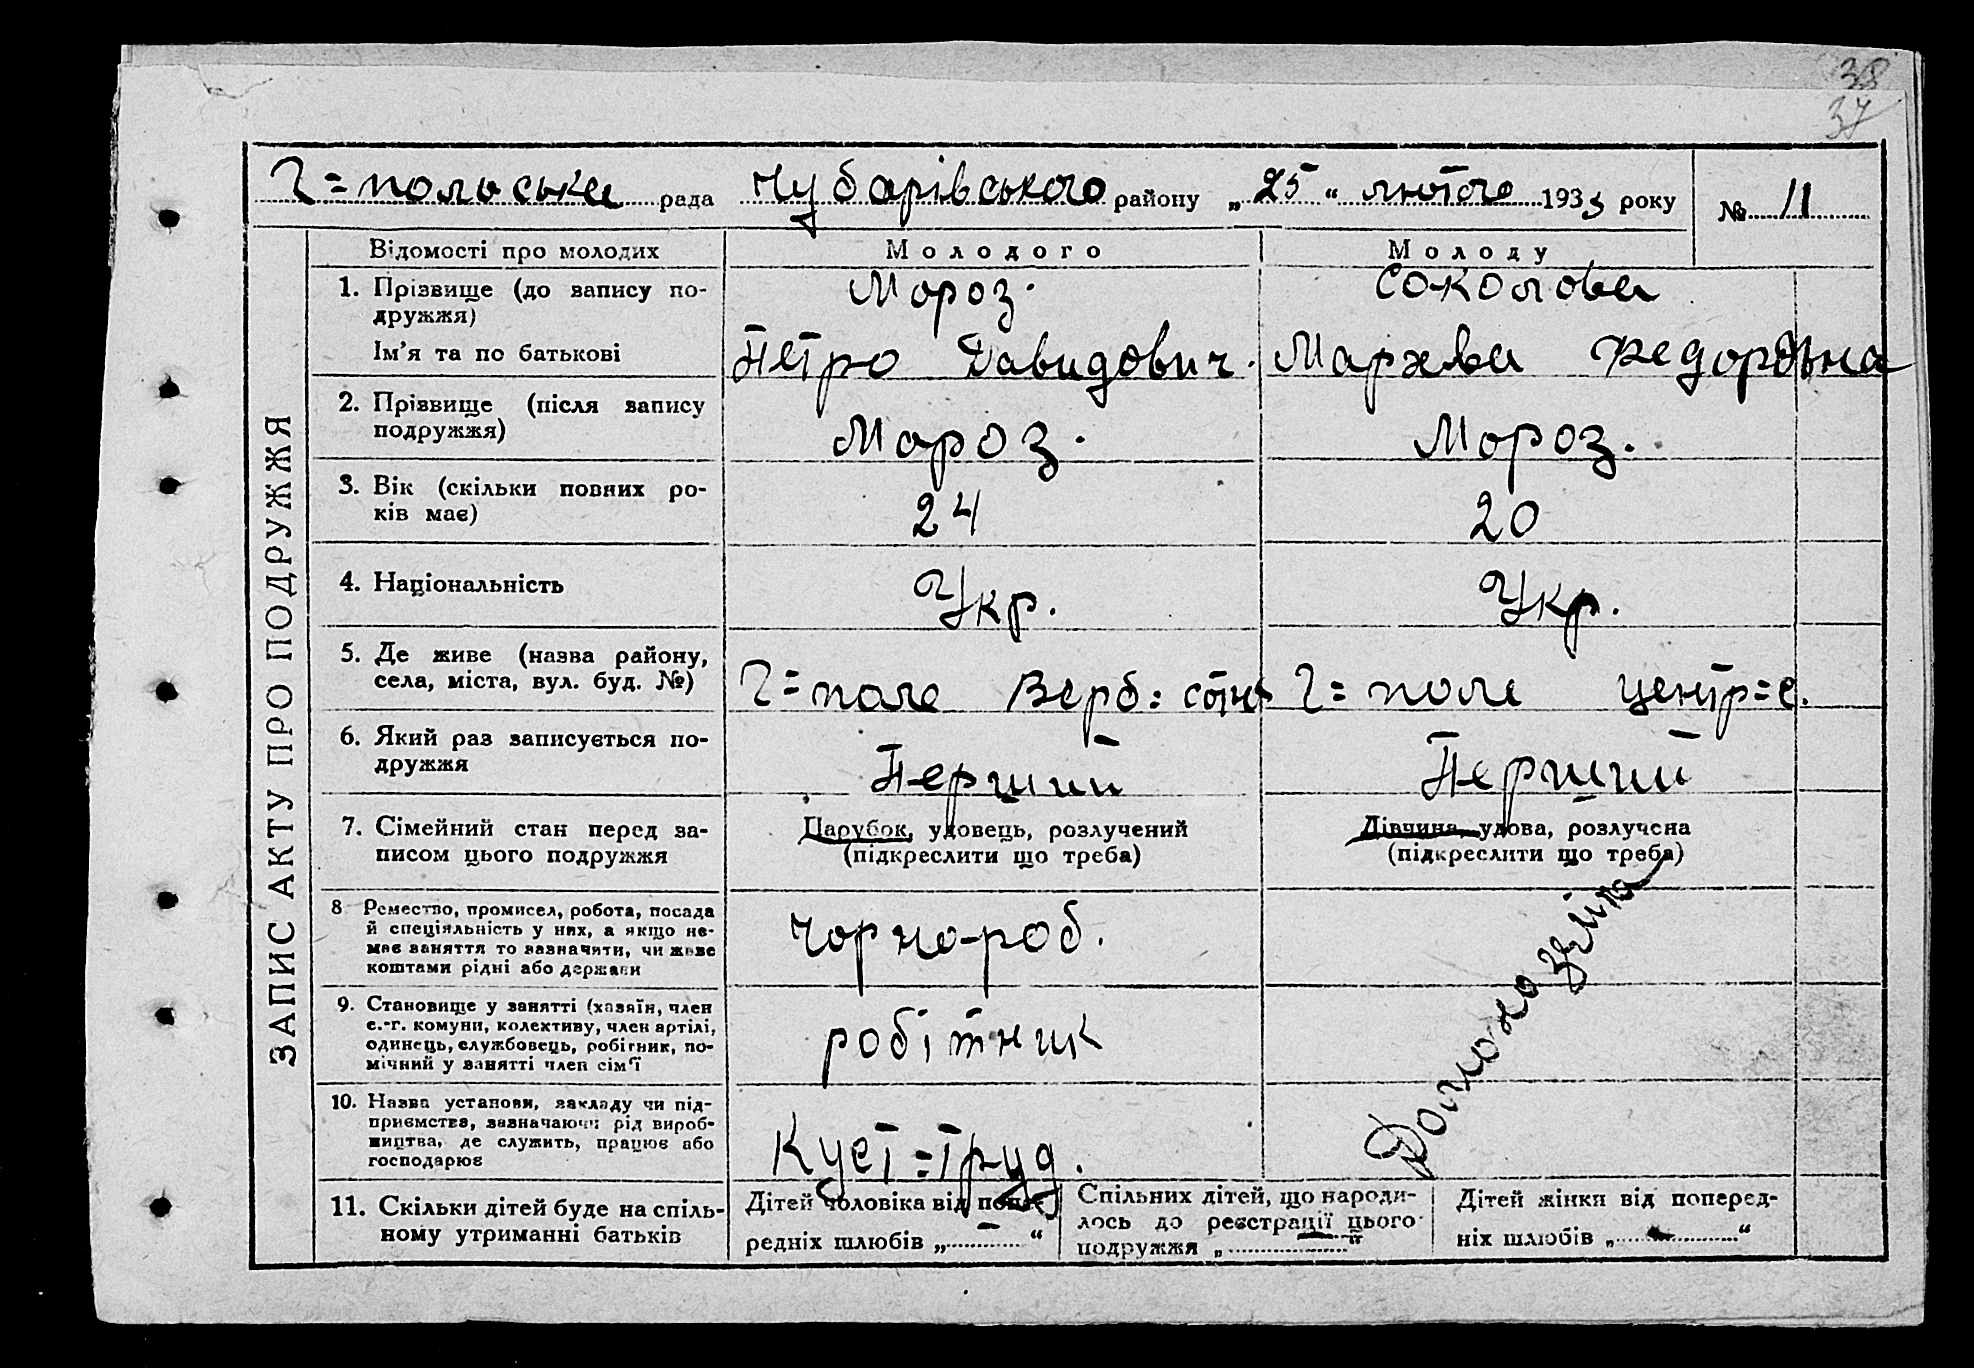 38
37
Г=польська рада Чубарівського району „25“ лютого 1933 року № 11
ЗАПИС АКТУ ПРО ПОДРУЖЖЯ
Відомості про молодих Молодого Молоду
1. Прізвище (до запису по- Мороз. Соколова
дружжя)
Ім'я та по батькові Петро Давидович. Мархва Федоровна
2. Прізвище (після запису
подружжя) Мороз. Мороз.
3. Вік (скільки повних ро-
ків має) 24 20
4. Національність Укр. Укр.
5. Де живе (назва району,
села, міста, вул. буд. №) Г=поле Верб: сотн Г=поле центр=с.
6. Який раз записується по-
дружжя Перший Перший
7. Сімейний стан перед за- Парубок, удовець, розлучений Дівчина, удова, розлучена
писом цього подружжя (підкреслити що треба) (підкреслити що треба)
8 Ремество, промисел, робота, посада
й спеціяльність у них, а якщо не-
має заняття то зазначити, чи живе
коштами рідні або держави
Чорно-роб.
Домохозяйка
9. Становище у занятті (хазяїн, член
с.-г. комуни, колективу, член артілі,
одинець, службовець, робітник, по-
мічний у занятті член сім'ї
робітник
10. Назва установи, закладу чи під-
приємства, зазначаючи рід вироб-
ництва, де служить, працює або
господарює
Куст=труд.
11. Скільки дітей буде на спіль-
ному утриманні батьків
Дітей чоловіка від попе-
редніх шлюбів „ — “
Спільних дітей, що народи-
лось до реєстрації цього
подружжя „ — “
Дітей жінки від поперед-
ніх шлюбів „ — “